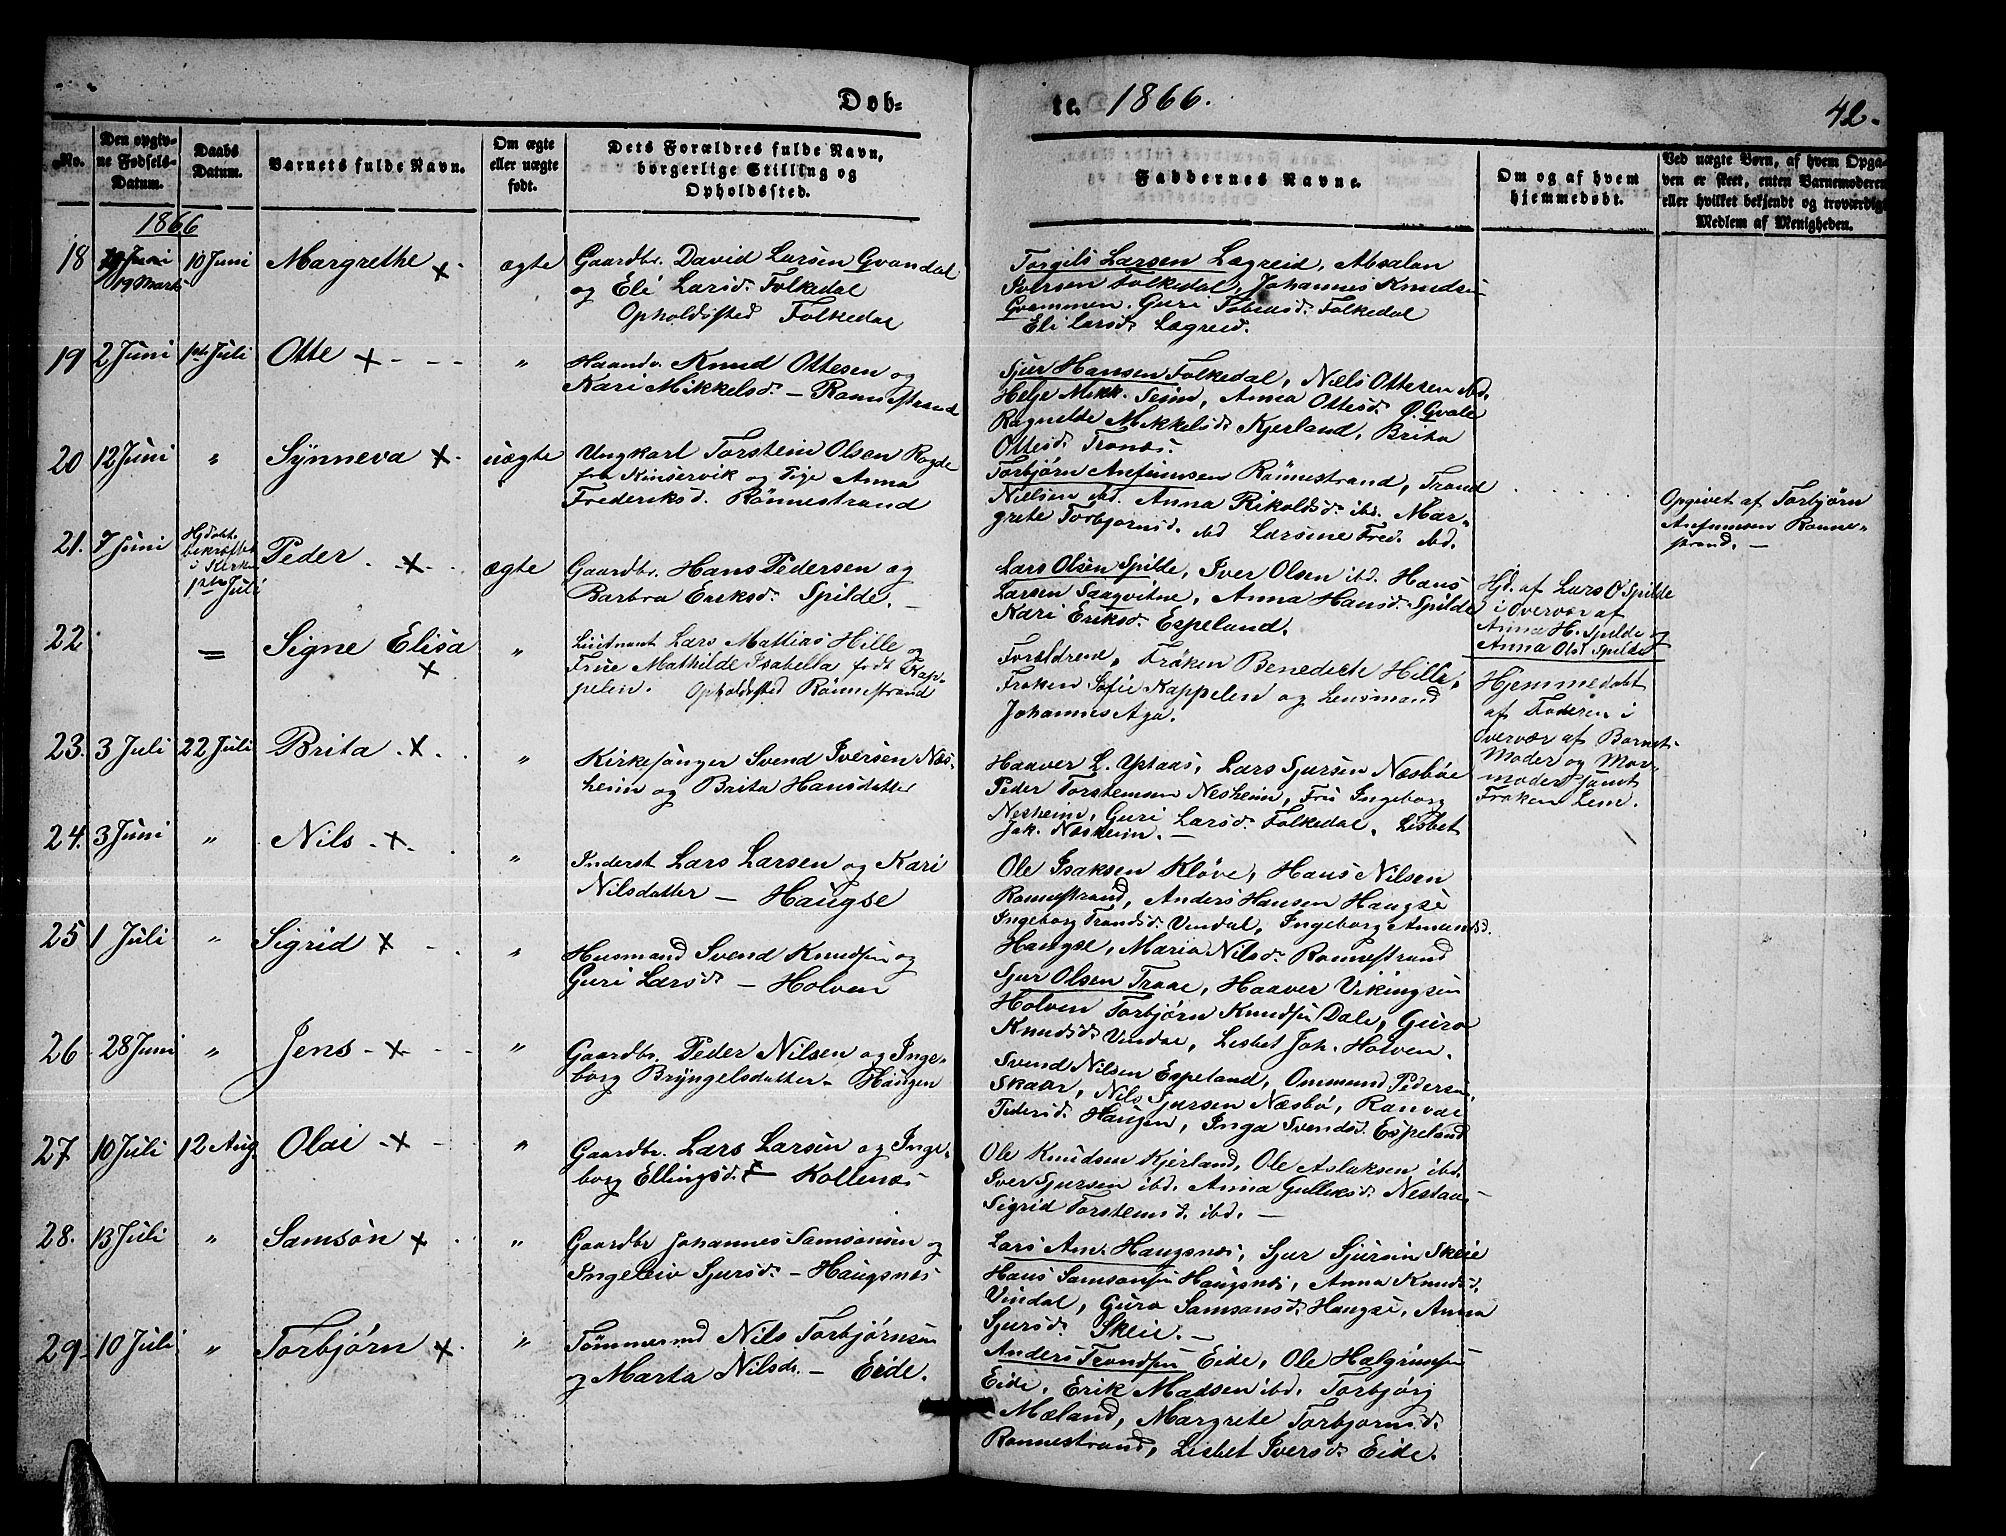 Døb=
te. 1866.
42.
No.
Den opgiv-
ne Fødsels-
Datum.
Daabs
Datum.
Barnets fulde Navn.
Om ægte
eller uægte
født.
Dets Forældres fulde Navn,
borgerlige Stilling og
Opholdssted.
Faddernes Navne.
Om og af hvem
hjemmedøbt.
Ved uægte Børn, af hvem Opga-
ven er skeet, enten Barnemoderen
eller hvilket bekjendt og troværdigt
Medlem af Menigheden.
1866
18
19 Marts
10 Juni
Margrethe x
ægte
Gaardbr. David Larsen Gvandal
og Eli Larsd. Folkedal
Opholdssted Folkedal
Torgils Larsen Lægreid, Absalon
Iversen Folkedal, Johannes Knudsen
Gvammen. Guri Tobiasd. Folkedal
Eli Larsd. Lægreid.
19
2 Juni
1ste Juli
Otte x - - -
"
Haandv. Knud Ottesen og
Kari Mikkelsd. – Ronnestrand
Sjur Hansen Folkedal, Niels Ottesen ibd.
Helje Mikk. Seim, Anna Ottesd. Ø. Gvale
Ragnilde Mikkelsd. Kjerland, Brita
Ottesd. Tronæs.
20
12 Juni
"
Synneva x -
uægte
Ungkarl Torstein Olsen Rogde
fra Kinservik og Pige Anna
Frederiksd. Rönnestrand
Torbjørn Anfinnsen Rönnestrand, Trond
Nielsen ibd. Anna Rikoldsd. ibd. Mar-
grete Torbjornsd. ibd Larsine Fred. ibd.
Opgivet af Torbjørn
Anfinnsen Ronne-
strand. –
21.
7 Juni
Hjdøbt.
bekræftet
i Kirken
1ste Juli
Peder - x -
ægte
Gaardbr. Hans Pedersen og
Barbra Eriksd. Spilde. –
Lars Olsen Spilde, Iver Olsen ibd. Hans
Larsen Saaqvitne, Anna Hansd. Spilde
Kari Eriksd. Espeland.
Hjd. af Lars O Spilde
i Overvær af
Anna H. Spilde og
Anna Olsd Spilde
22
=
Signe Elisa
x
"
Lieutnant Lars Mathias Hille og
Frue Mathilde Isabella født Kap-
pelen. Opholdssted Rönnestrand
Forældrene, Frøken Benedicte Hille,
Froken Sofie Kappelen og Lensmand
Johannes Aga.
Hjemmedøbt
af Faderen i
Overvær af Barnets
Moder og Mor-
moder samt
Froken Lem.
23.
3 Juli
22 Juli
Brita - x -
"
Kirkesanger Svend Iversen Næs-
heim og Brita Hansdatter
Haaver L. Ystaas, Lars Sjursen Næsbøe
Peder Torsteinsen Nesheim, Fru Ingeborg
Nesheim, Guri Larsd. Folkedal. Lisbet
Joh. Næsheim. –
24.
3 Juni
"
Nils - x -
"
Inderst Lars Larsen og Kari
Nilsdatter – Haugse
Ole Isaksen Kløve, Hans Nilsen
Ronnestrand, Anders Hansen Haugse
Ingeborg Trondsd. Vindal, Ingeborg Amundsd.
Haugse, Maria Nilsd. Ronnestrand
25
1 Juli
"
Sigrid x -
"
Husmand Svend Knudsen og
Guri Larsd. – Holven
Sjur Olsen Traae, Haaver Vikingsen
Holven Torbjørn Knudsen Dale, Guro
Knudsd. Vindal, Lisbet Joh. Holven.
26
28 Juni
"
Jens - x - -
"
Gaardbr. Peder Nilsen og Inge-
borg Bryngelsdatter – Haugen
Svend Nilsen Espeland, Ommund Pedersen
Skaar, Nils Sjursen Næsbø, Ranvei
Pedersd. Haugen, Inga Svendsd. Espeland
27
10 Juli
12 Aug
Olai - x -
"
Gaardbr. Lars Larsen og Inge-
borg Ellingsd. – Kollenæs
Ole Knudsen Kjerland, Ole Aslaksen ibd.
Iver Sjursen ibd. Anna Gulleksd. Nestaas
Sigrid Torsteinsd. ibd. –
28.
13 Juli
"
Samsøn x
"
Gaardbr Johannes Samsonsen og
Ingeleiv Sjursd. – Haugsnes
Lars Am. Haugsnæs, Sjur Sjursen Skeie
Hans Samsonsen Haugsnæs, Anna Knudsd.
Vindal, Guro Samsonsd. Haugse, Anna
Sjursd. Skeie. –
29
10 Juli
"
Torbjørn x -
"
Tømmermd Nils Torbjørnsen
og Marta Nilsd. – Eide.
Anders Trondsen Eide, Ole Halgrimsen
Eide, Erik Madsen ibd. Torbjørg
Mæland, Margrete Torbjornsd.
Ronnestrand, Lisbet Iversd. Eide.